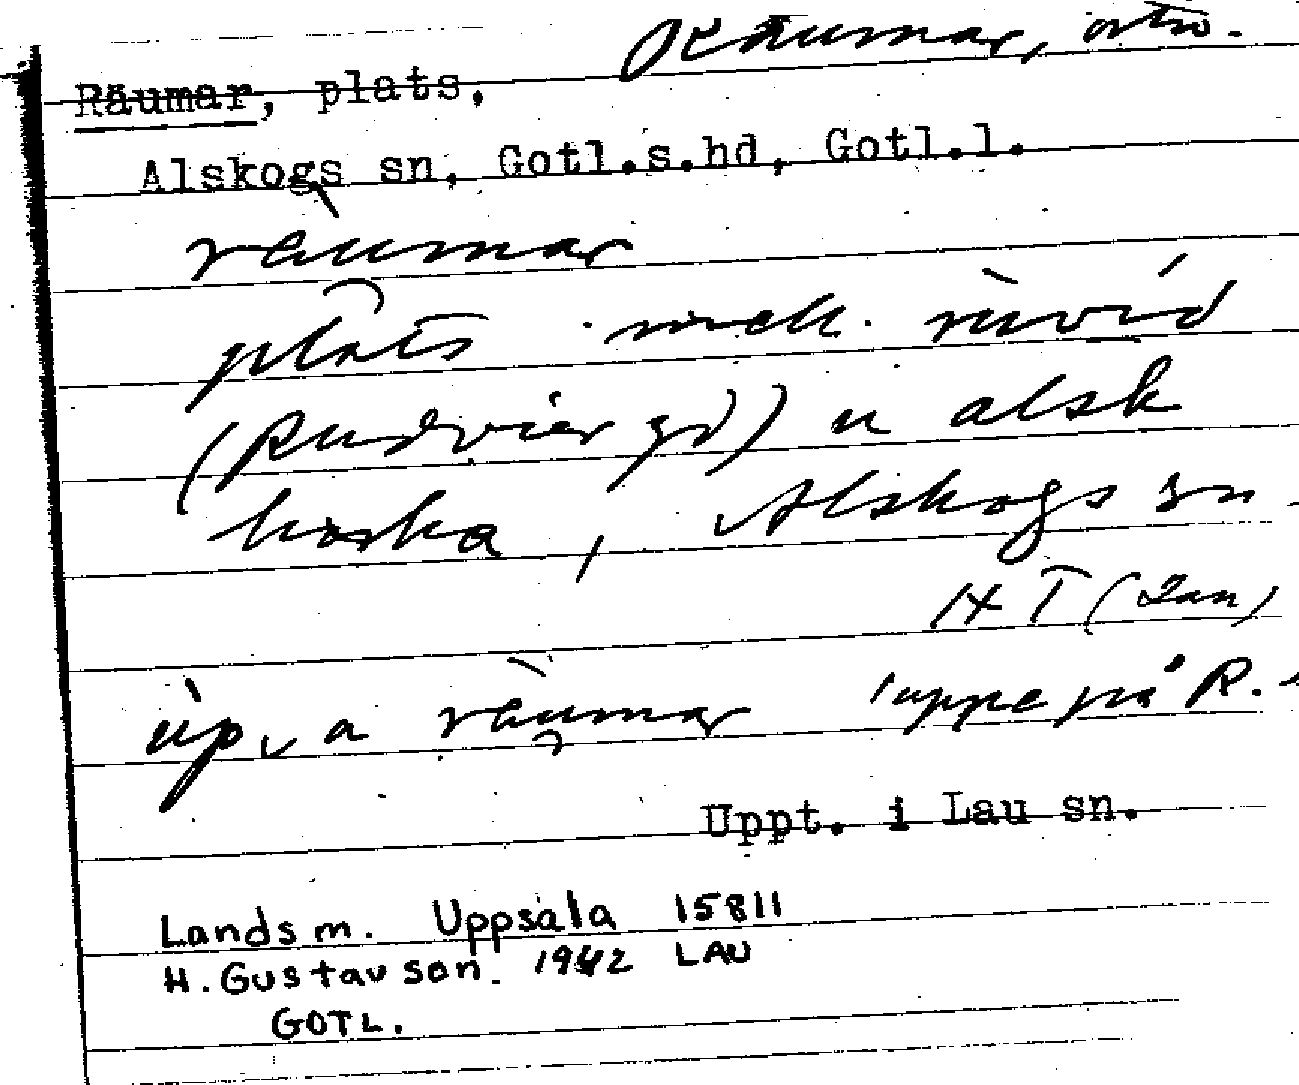 Räumar, ortn.
Räumar, plats,
Alskogs sn, Gotl.s.hd, Gotl.l.
räumar
plats mell. rivid
(Rudvier gd) u alsk
körka, Alskogs sn
HT (Lau)
up. a räumar 'uppe på R.'
Uppt. i Lau sn.
Landsm. Uppsala 15811
H. Gustavson. 1942 LAU
GOTL.